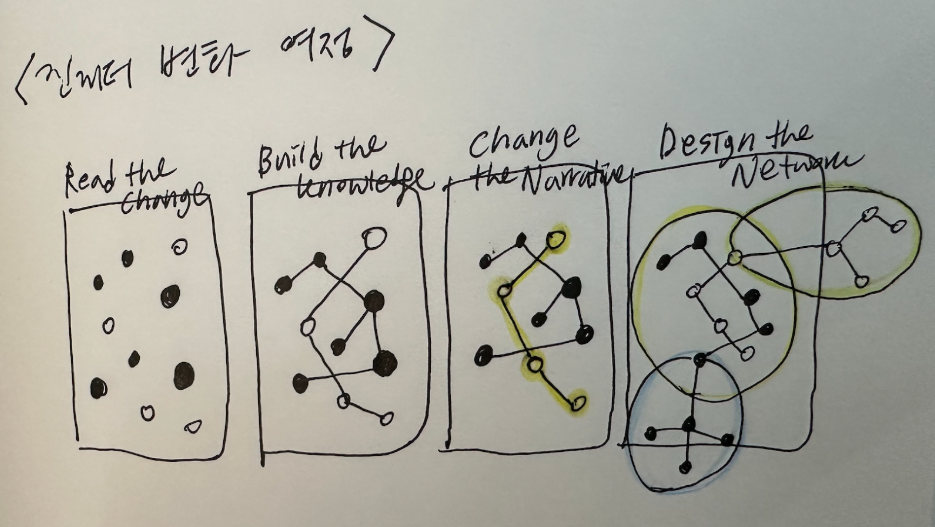 <진저티 변화 여정>
Read the
change
Build the
knowledge
Change
the Narrative
Design the
Network